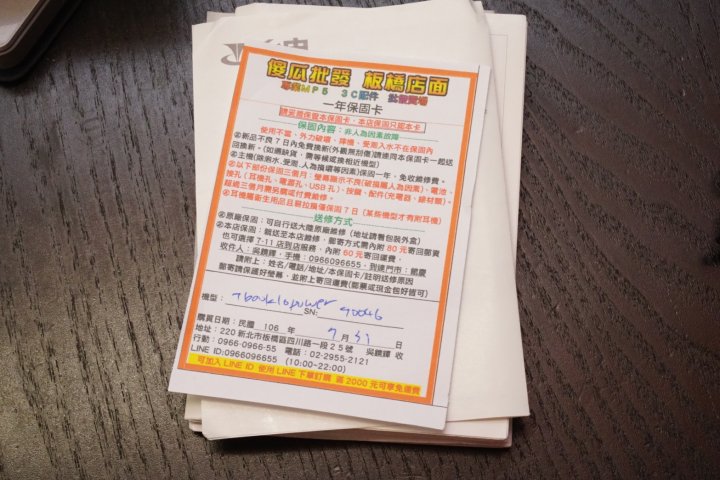 傻瓜批發 板橋店面
專業MP5 3C配件 批發賣場
一年保固卡
請妥善保管本保固卡，本店保固只認本卡
保固內容：非人為因素故障
使用不當、外力破壞、摔機、受潮入水不在保固內
②新品不良7日內免費換新(外觀無刮傷)請連同本保固卡一起送
回換新。(如遇缺貨，需等候或換相近機型)
②主機(除泡水.受潮.人為損壞等因素)保固一年，免收維修費。
②以下部份保固三個月：螢幕顯示不良(破損屬人為因素)、電池、
接孔(耳機孔、電源孔、USB孔)、按鍵、配件(充電器、線材類)。
超過三個月需另購或付費維修。
②耳機屬衛生用品且易拉損僅保固7日(某些機型才有附耳機)
送修方式
②原廠保固：可自行送大陸原廠維修(地址請看包裝外盒)
②本店保固：親送至本店維修，郵寄方式需內附80元寄回郵資
也可選擇7-11店到店服務，內附60元寄回運費，
收件人：吳鏡鐸，手機：0966096655，到達門市：館慶
請附上：姓名/電話/地址/本保固卡/註明送修原因
郵寄請保護好螢幕，並附上寄回運費(郵票或現金包好皆可)
機型： SN: 90046
購買日期：民國 106 年 9 月 31 日
地址：220新北市板橋區四川路一段25號 吳鏡鐸 收
行動：0966-0966-55 電話：02-2955-2121
LINE ID:0966096655 (10:00~22:00)
可加入LINE ID 使用LINE下單訂購 滿2000元可享免運費